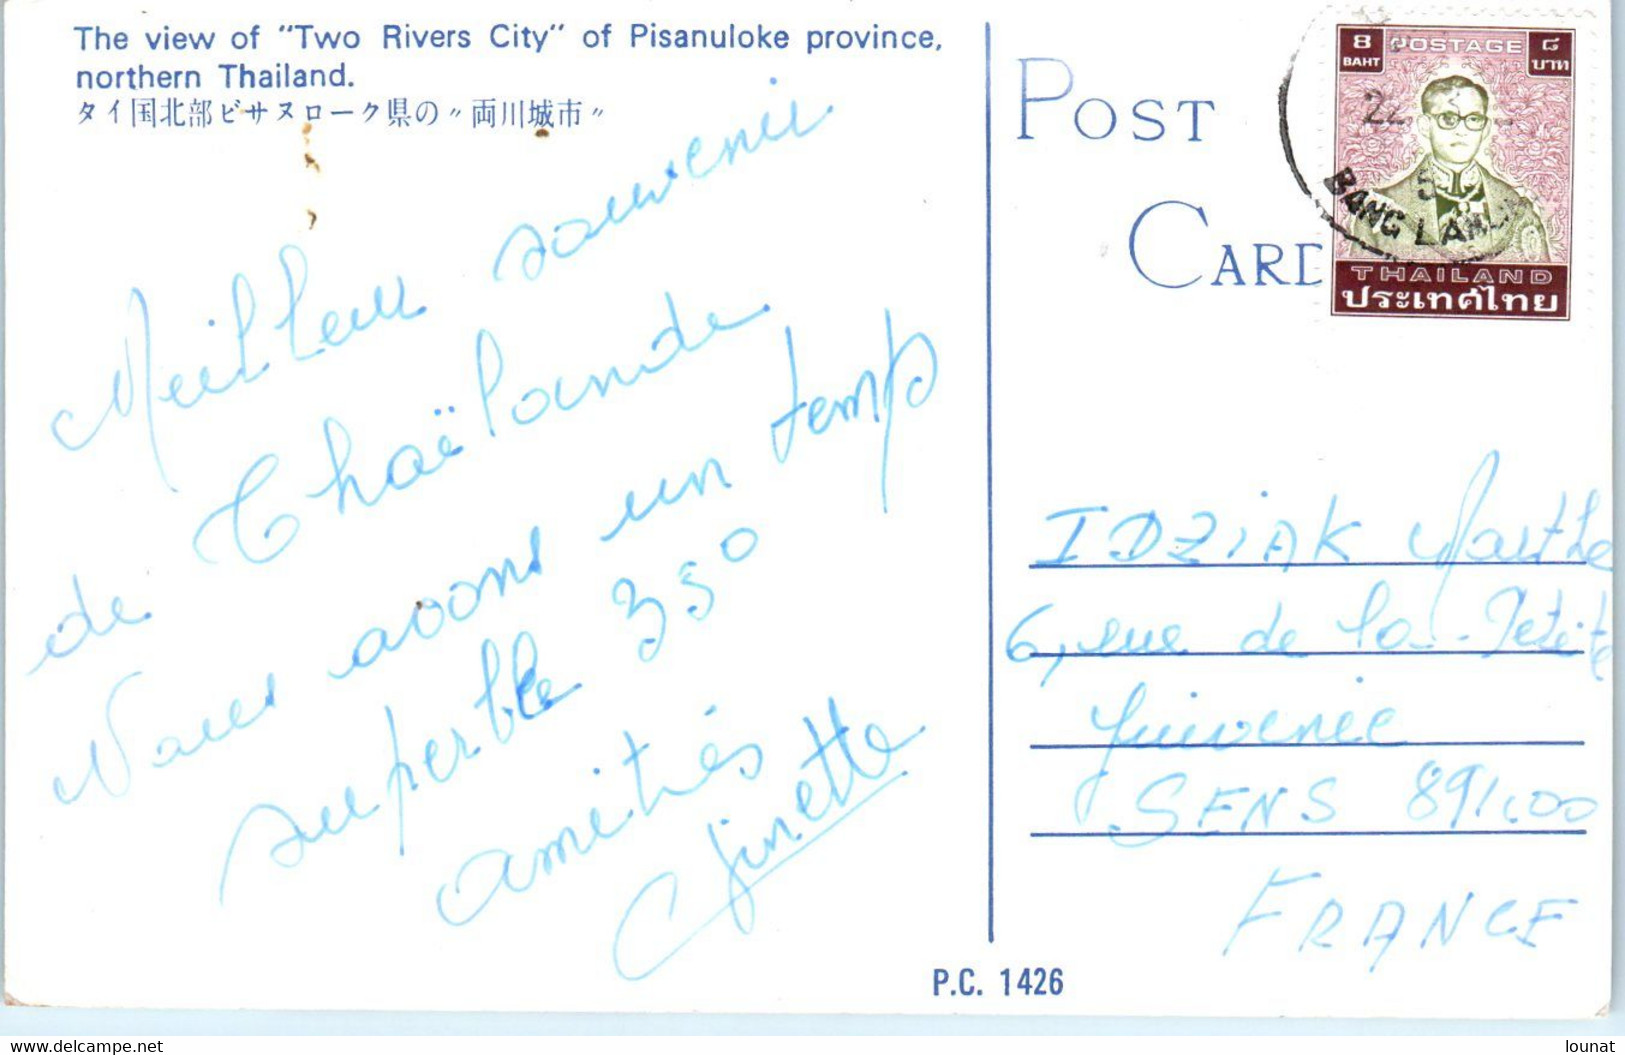 The view of "Two Rivers City" of Pisanuloke province,
northern Thailand.
タイ国北部ピサヌローク県の〃両川城市〃
Meilleur souvenir
de Thaïlande
Nous avons un temps
superbe 35°
amitiés
Ginette
POST
CARD
8 POSTAGE ๘
BAHT บาท
22
5
BANG LAMUNG
THAILAND
ประเทศไทย
IDZIAK Marthe
6, rue de la Petite
Juiverie
SENS 89100
FRANCE
P.C. 1426
www.delcampe.net
lounat